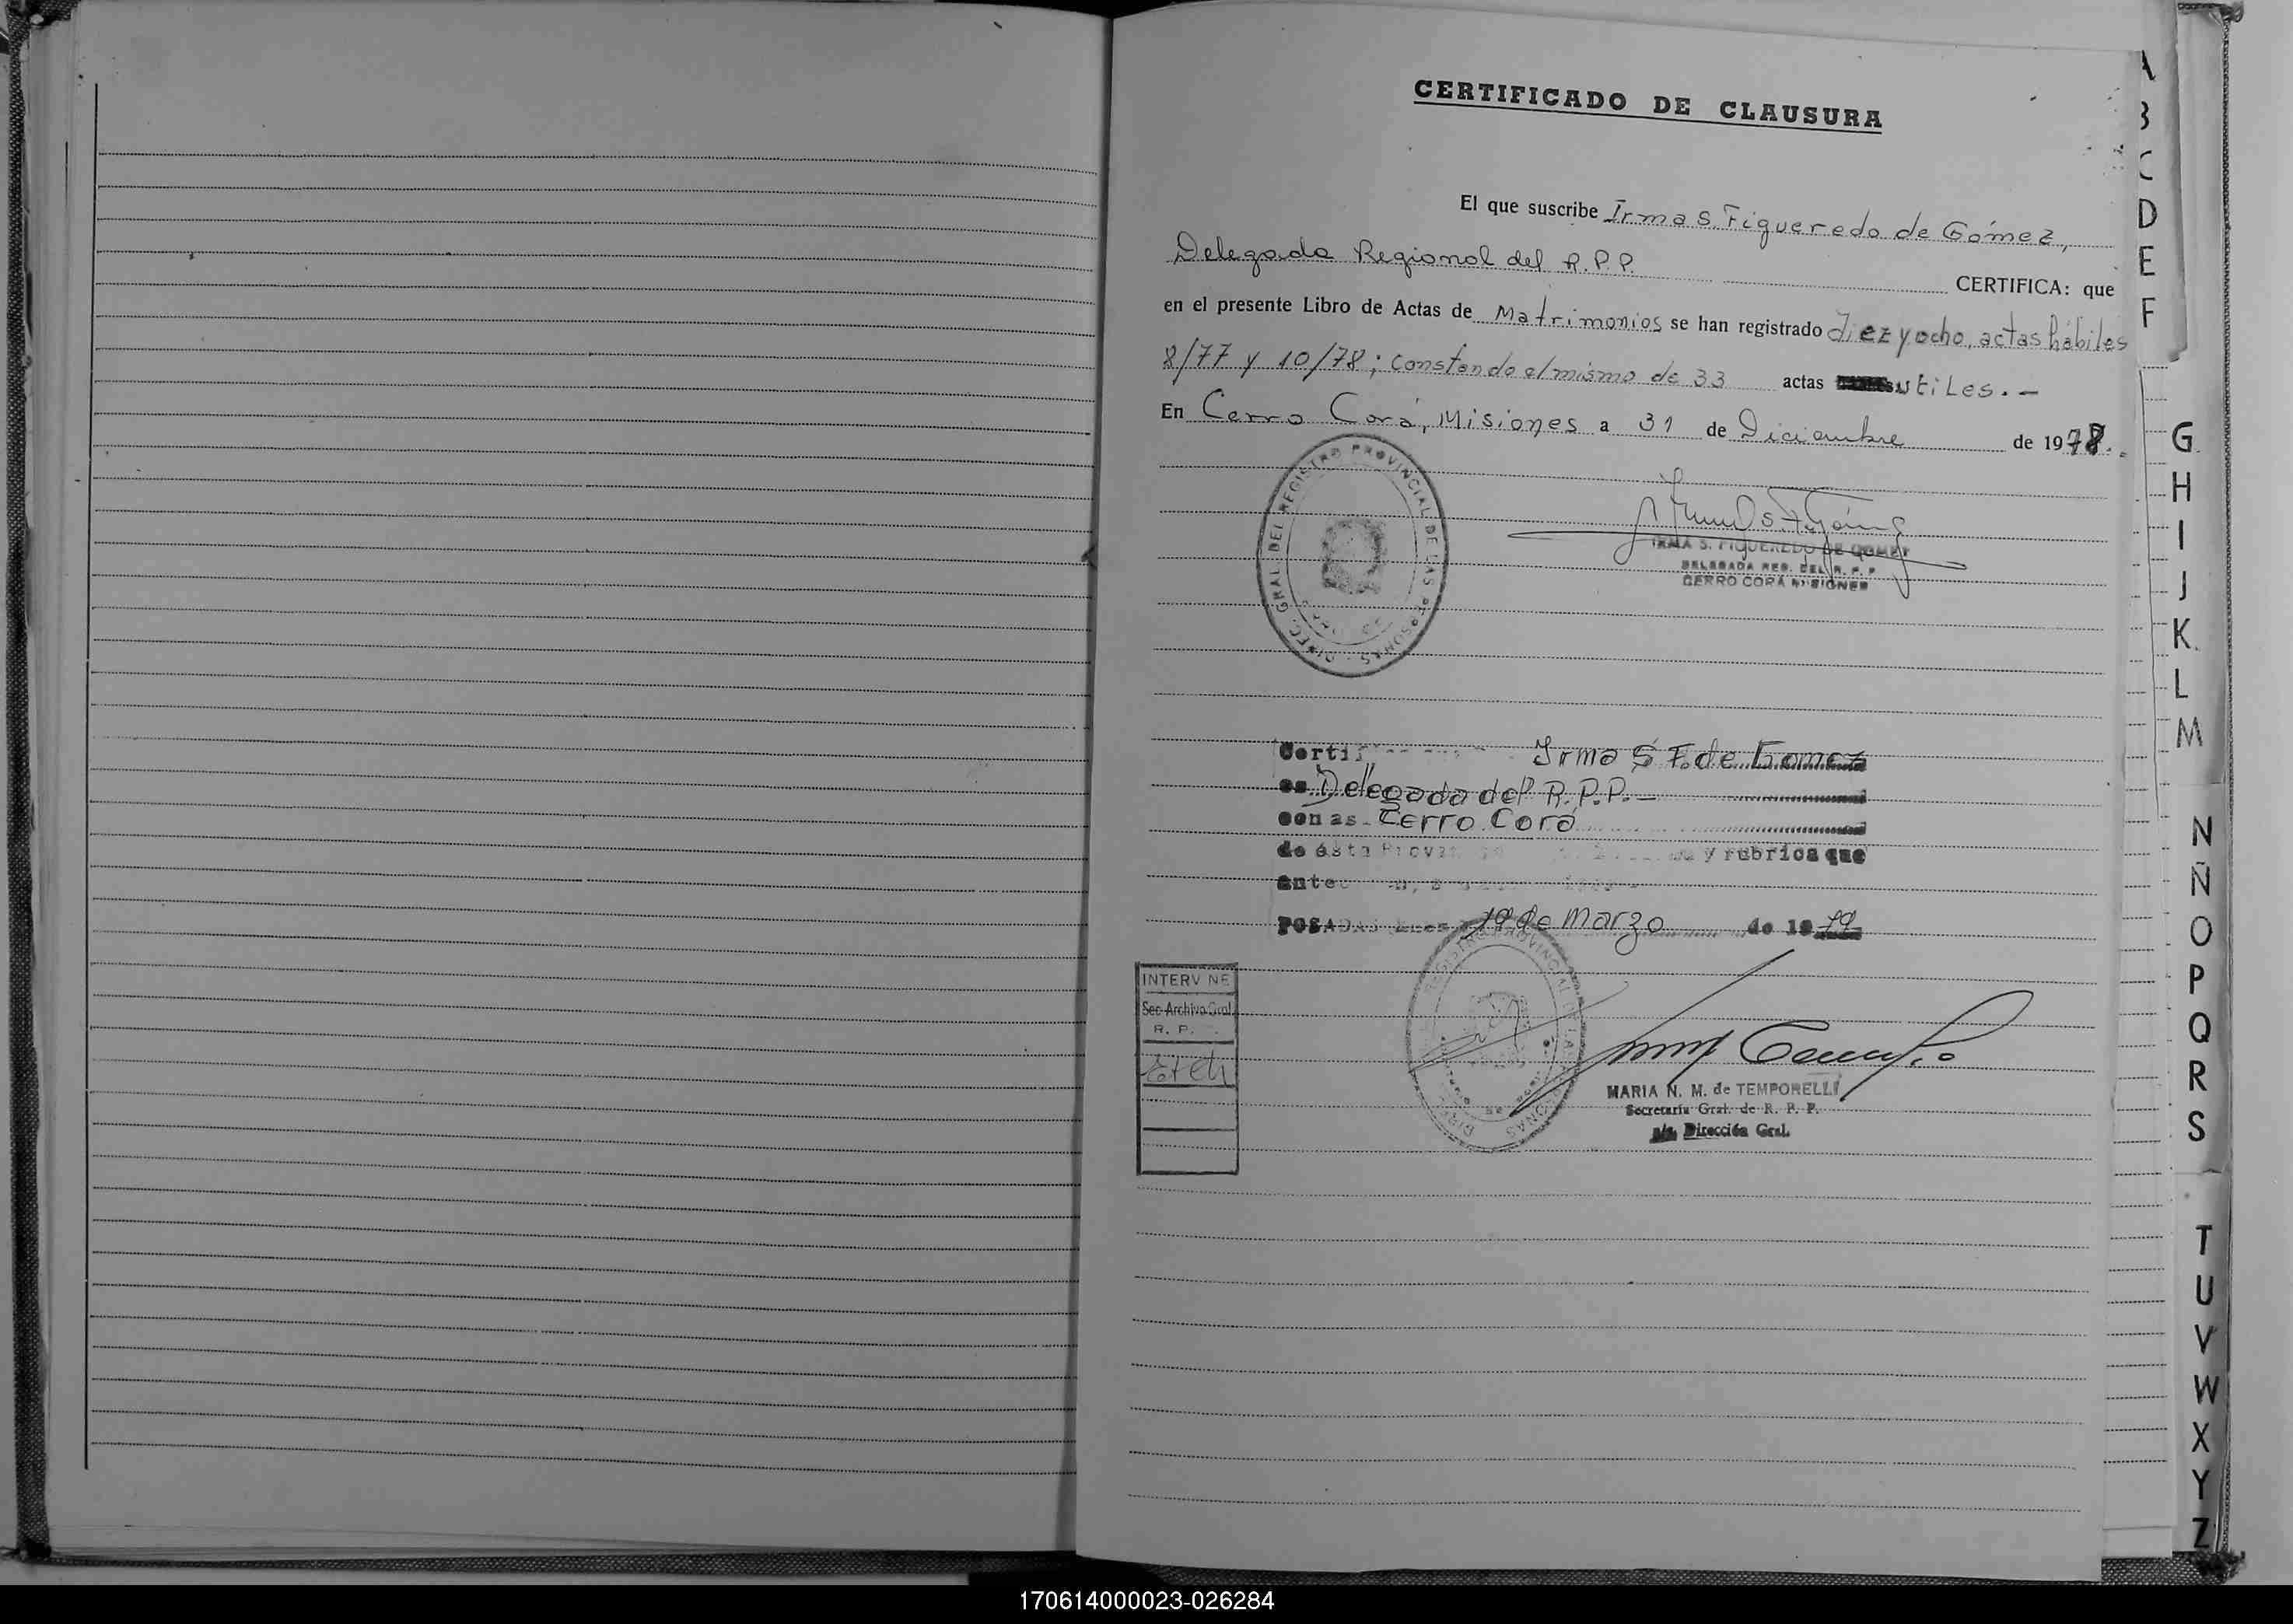 CERTIFICADO DE CLAUSURA
El que suscribe Irma S. Figueredo de Gómez,
Delegada Regional del R.P.P. CERTIFICA: que
en el presente Libro de Actas de Matrimonios se han registrado diez y ocho, actas hábiles
8/77 y 10/78; constando el mismo de 33 actas utiles.-
En Cerro Corá, Misiones a 31 de Diciembre de 1978.
DIREC. GRAL. DEL REGISTRO PROVINCIAL DE LAS PERSONAS
IRMA S. FIGUEREDO DE GOMEZ
DELEGADA REG. DEL R. P. P.
CERRO CORA MISIONES
Irma S F. de Gomez
es Delegada del R.P.P.-
Cerro Corá
de ésta y rubrica que
POSADAS 19 de Marzo de 1979
INTERVINE
Sec Archivo Gral.
R. P.
MARIA N. M. de TEMPORELLI
Secretaria Gral. de R. P. P.
Dirección Gral.
A
B
C
D
E
F
G
H
I
J
K
L
M
N
Ñ
O
P
Q
R
S
T
U
V
W
X
Y
Z
170614000023-026284